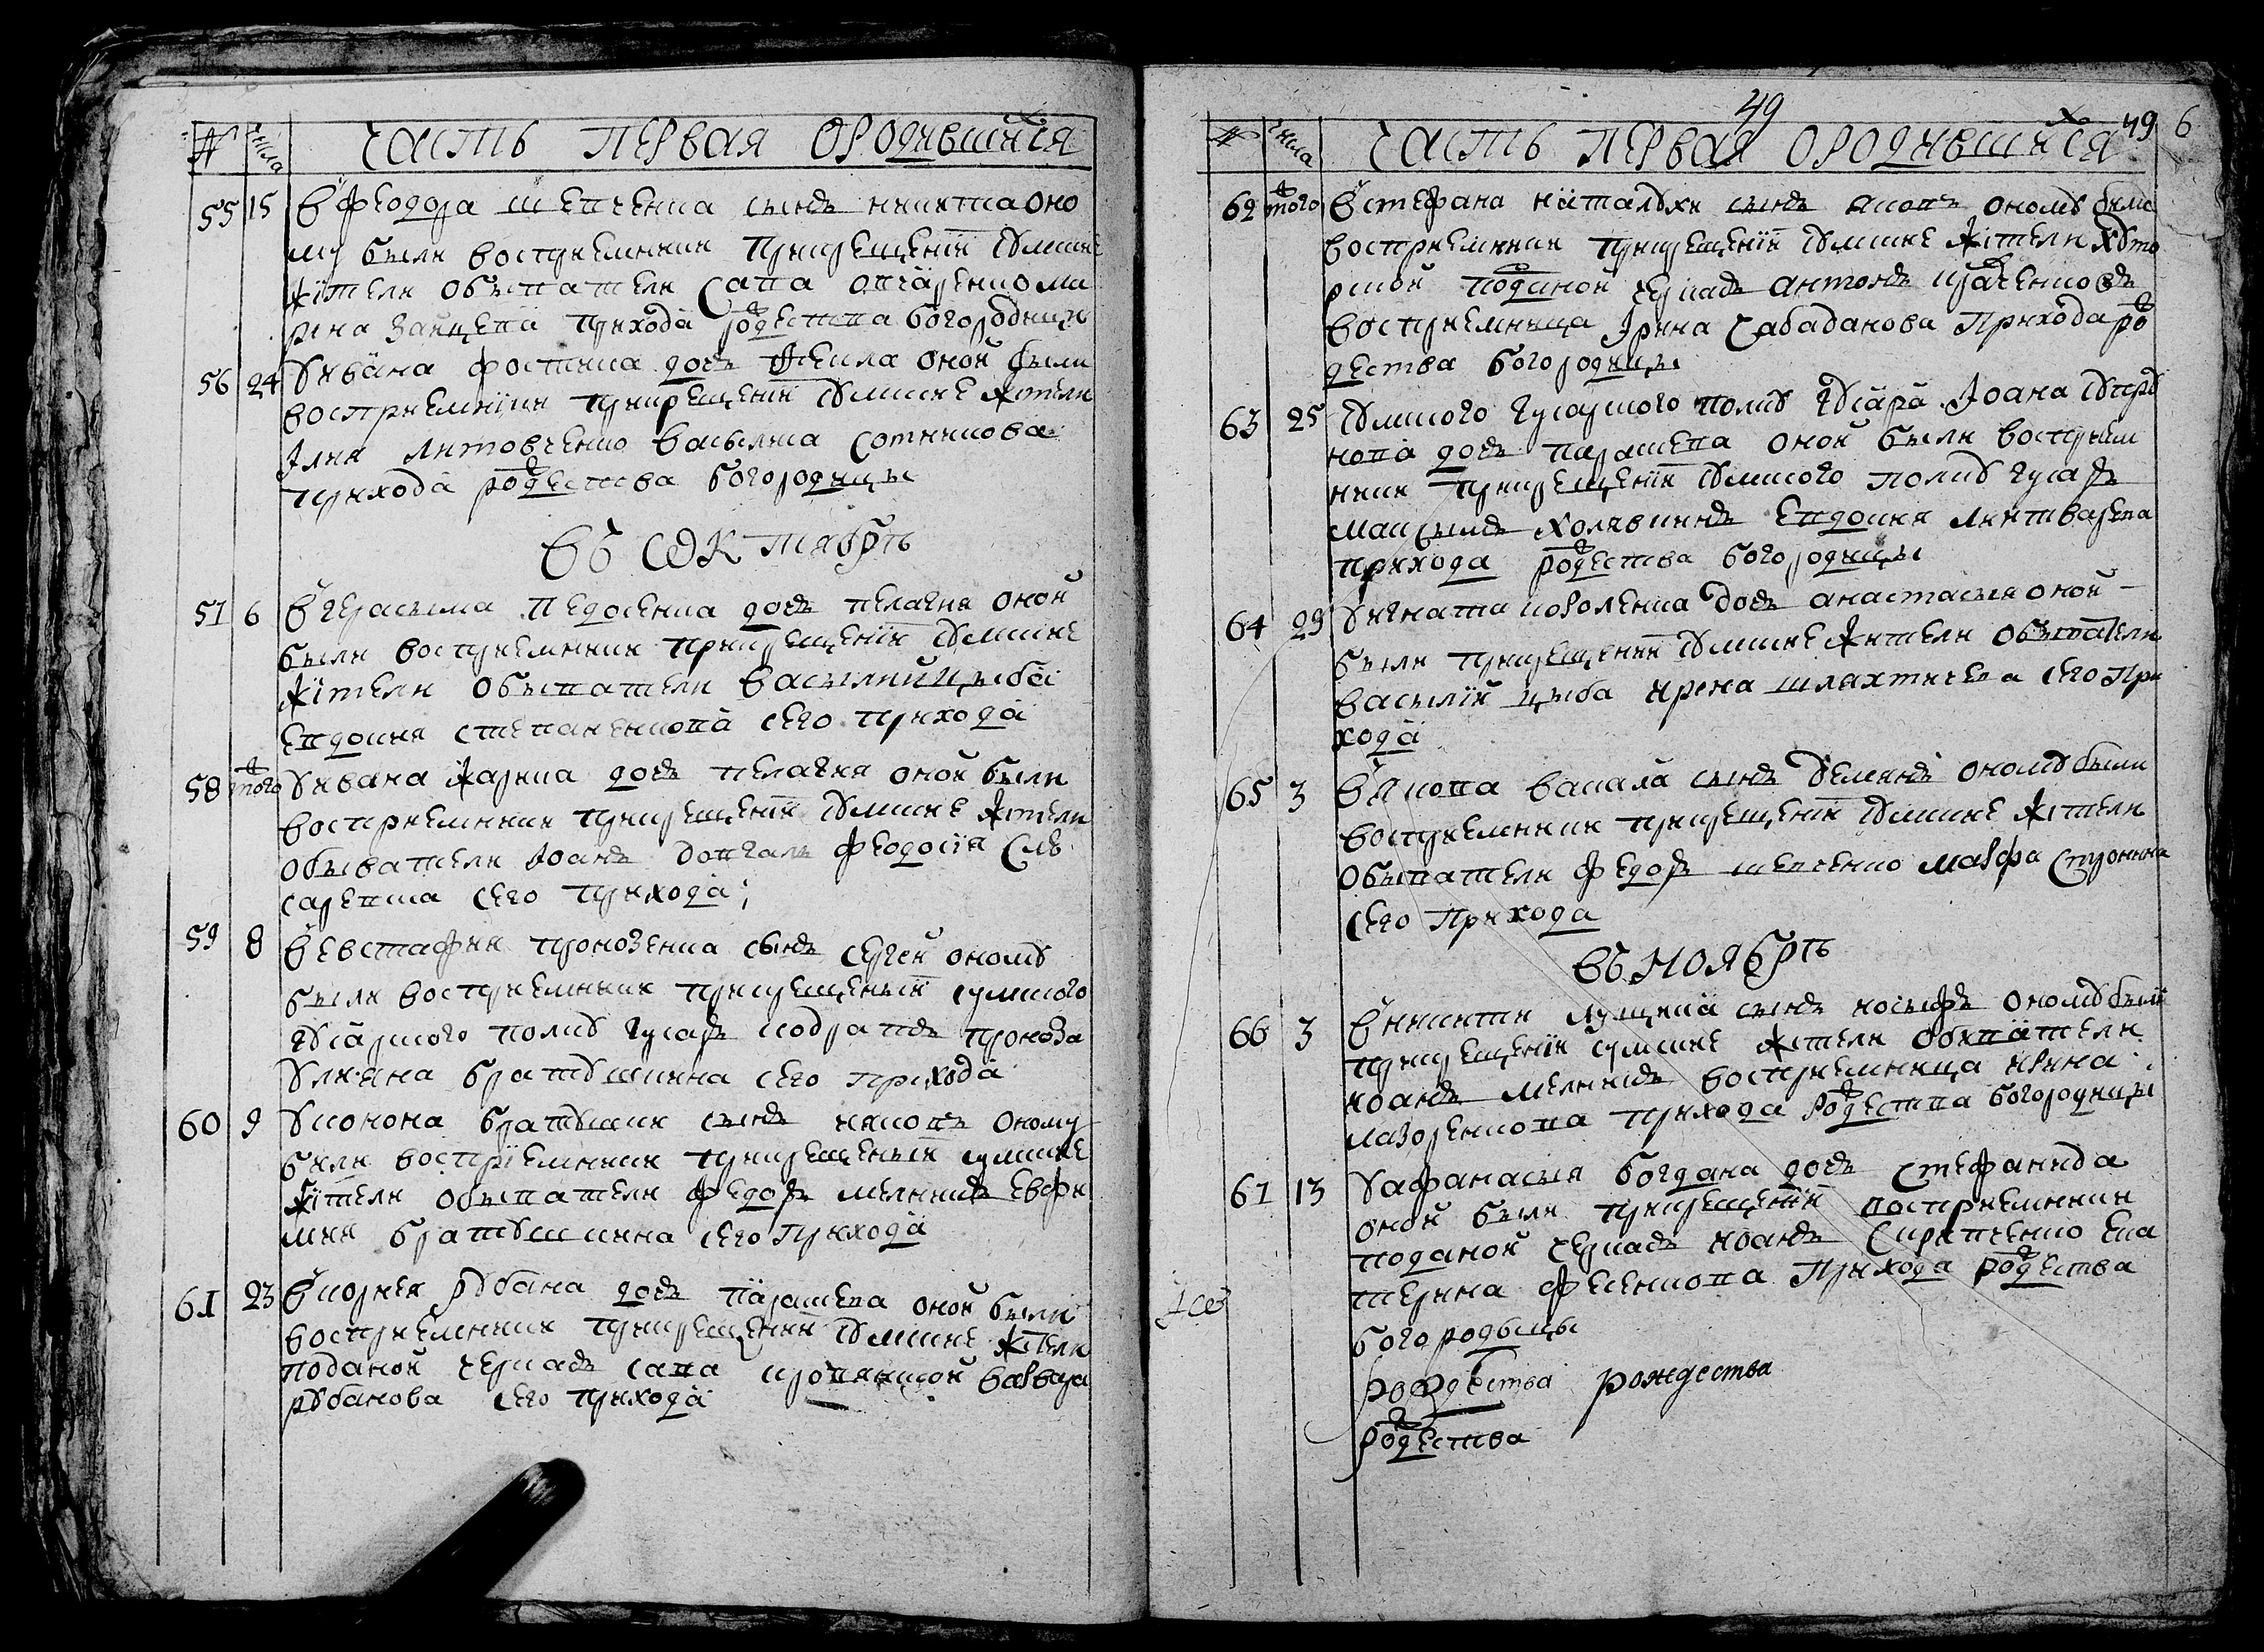 № числа часть первая ородившихся
55 15 ў феодора шевченка сынъ никита оно
му были восприемники прикрещенїи сумские
жїтели обыватели сава овчаренко ма
рина зайцева прихода рождества богородицы
56 24 у ивана фостика дочь фекла оной были
восприемники прикрещенїи сумские жители
Ілия литовченко васылиса сотникова
прихода рождества богородицы
въ октябрѣ
57 6 ў герасыма федосенка дочь пелагия оной
были восприемники прикрещенїи сумские
жїтели обыватели василий цыба
евдокия степаненкова сего прихода
58 того у ивана жарика дочь пелагия оной были
восприемники прикрещенїи сумские жители
обыватели Іоанъ довгаль феодосїя слю
саревка сего прихода
59 8 ў евстафия пронозенка сынъ сергей оному
были восприемники прикрещеныи сумского
гусарского полку гусаръ кодратъ проноза
улияна братушкина сего прихода
60 9 у конона братушки сынъ ияковъ оному
были воспрїемники прикрещеныи сумские
жїтели обыватели федоръ мелникъ евфи
мия братушкина сего прихода
61 23 ў корнея рубана дочь параскева оной были
восприемники прикрещении сумские жители
поданой черкасъ сава кровянкой варвара
рубанова сего прихода
49
№ числа часть первая ородившихся 49 6
62 того ў стефана сынъ яковъ оному были
восприемники прикрещенїи сумские жїтели хуто
рской поданой черкасъ антонъ кравченковъ
восприемница Ірина сабаданова прихода ро
дества богородицы
63 25 сумского гусарского полку гусара Іоана супру
нова дочь параскева оной были восприем
ники прикрещенїи сумского полку гусаръ
максымъ холявинъ евдокия линтварева
прихода рождества богородицы
64 29 у игната короленка дочь анастасыя оной
были прикрещении сумские жители обыватели
василїй цыба ирина шляхтичева сего при
хода
65 3 ў якова вакала сынъ демянъ оному были
восприемники прикрещенїи сумские жїтели
обыватели федоръ шевченко мавра стронина
сего прихода
въ ноябрѣ
66 3 ў никиты лущика сынъ иосыфъ оному были
прикрещенїи сумские жїтели обиватели
иоанъ мелникъ восприемница ирина
лазоренкова прихода рождества богородицы
67 13 у афанасыя богдана дочь стефанида
оной были прикрещенїи восприемники
поданой черкасъ иоанъ сиряченко ека
терина фесенкова прихода рождества
богородыцы
рождества рождества
рождества